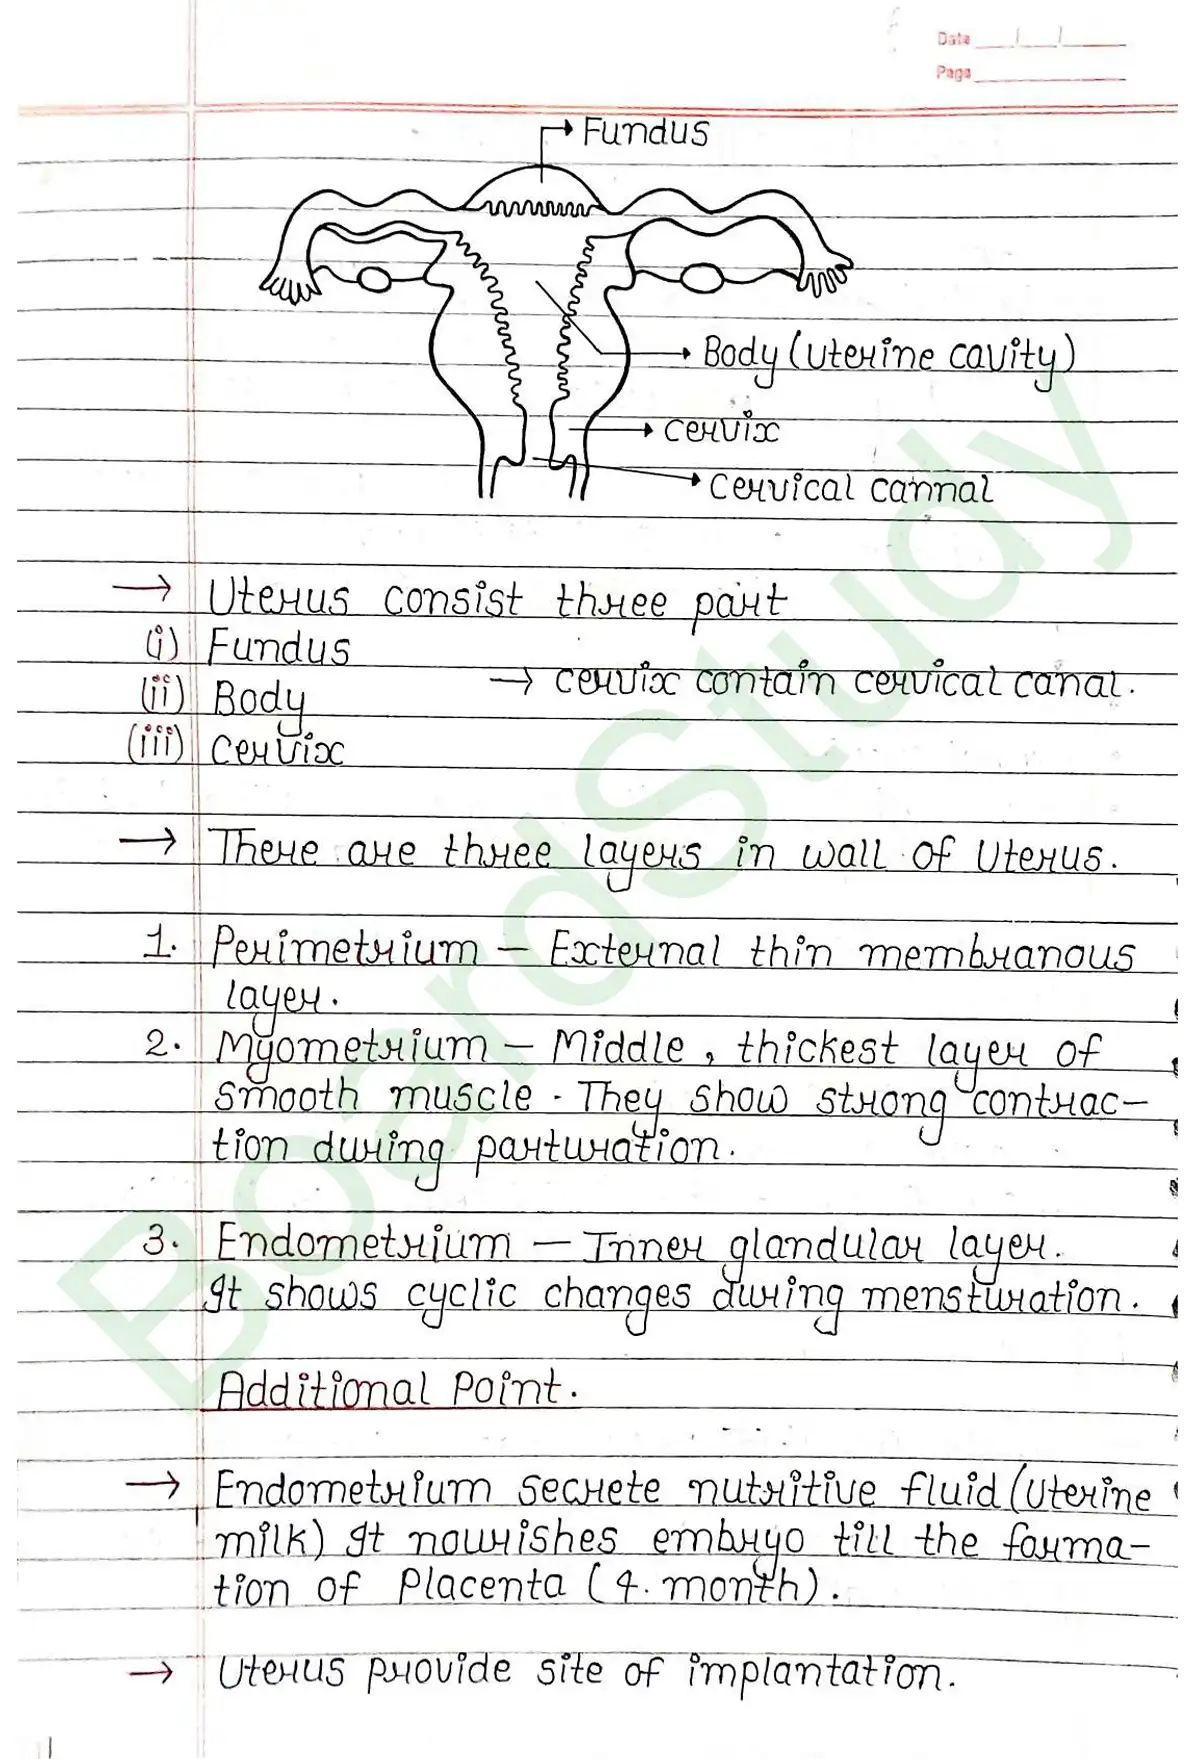 Date
Page
Fundus
Body (Uterine cavity)
cervix
cervical cannal
→ Uterus consist three part
(i) Fundus
(ii) Body
→ cervix contain cervical canal.
(iii) Cervix
→ There are three layers in wall of Uterus.
1. Perimetrium – External thin membranous
layer.
2. Myometrium – Middle, thickest layer of
smooth muscle. They show strong contrac-
tion during parturation.
3. Endometrium – Inner glandular layer.
It shows cyclic changes during mensturation.
Additional Point.
→ Endometrium secrete nutritive fluid (Uterine
milk) It nourishes embryo till the forma-
tion of Placenta (4. month).
→ Uterus provide site of implantation.
BoardStudy